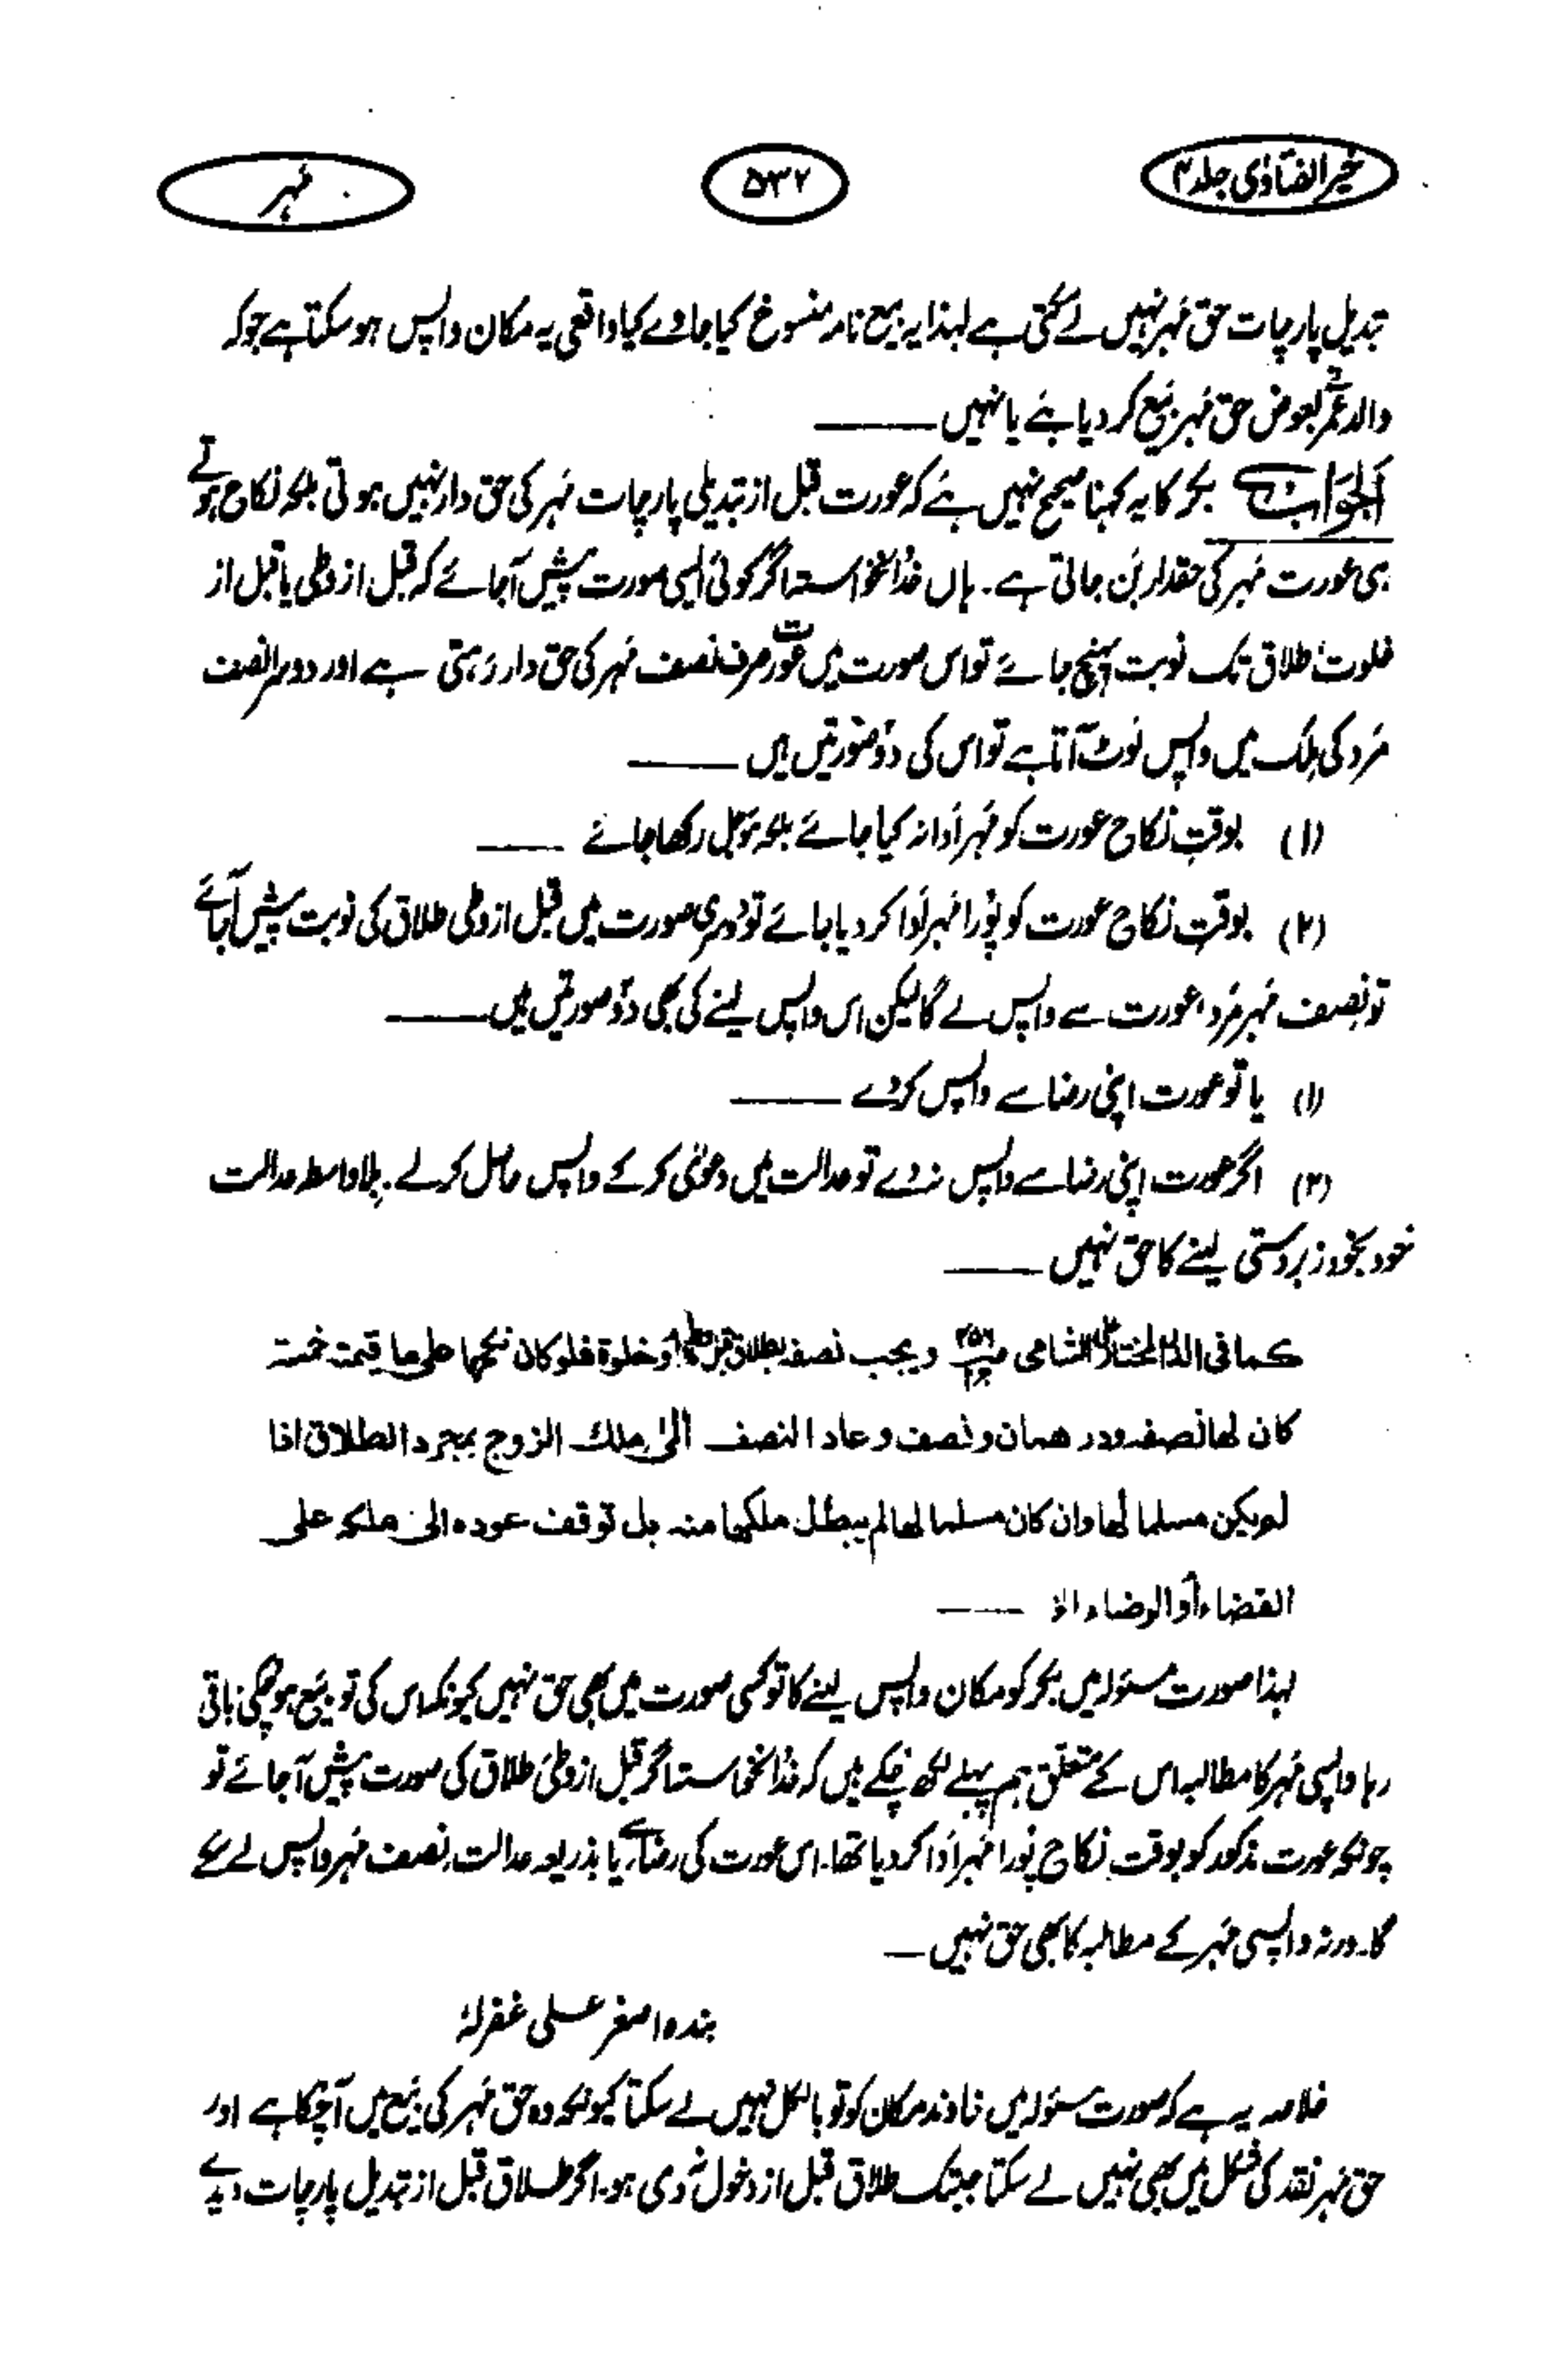 خیر الفتاوٰی جلد ۴
۵۳۷
مہر
تبدیل پارچات حق مہر نہیں لے سکتی ہے لہذا یہ بیع نامہ منسوخ کیا جاوے کیا واقعی یہ مکان واپس ہو سکتا ہے جو کہ
والد عمر بعوض حق مہر بیع کر دیا ہے یا نہیں ——
الجواب بکر کا یہ کہنا صحیح نہیں ہے کہ عورت قبل از تبدیلی پارچات مہر کی حق دار نہیں ہوتی بلکہ نکاح ہوتے
ہی عورت مہر کی حقدار بن جاتی ہے۔ ہاں خدانخواستہ اگر کوئی ایسی صورت پیش آجائے کہ قبل از وطی یا قبل از
خلوت طلاق تک نوبت پہنچ جائے تو اس صورت میں عورت صرف نصف مہر کی حق دار رہتی ہے اور دوسرا نصف
مرد کی ملک میں واپس لوٹ آتا ہے تو اس کی دو صورتیں ہیں ——
(۱) بوقتِ نکاح عورت کو مہر ادا نہ کیا جائے بلکہ مؤجل رکھا جائے ——
(۲) بوقتِ نکاح عورت کو پورا مہر ادا کر دیا جائے تو دوسری صورت میں قبل از وطی طلاق کی نوبت پیش آجائے
تو نصف مہر مرد، عورت سے واپس لے گا لیکن اس واپس لینے کی بھی دو صورتیں ہیں ——
(۱) یا تو عورت اپنی رضا سے واپس کر دے ——
(۲) اگر عورت اپنی رضا سے واپس نہ دے تو عدالت میں دعوٰی کر کے واپس حاصل کر لے۔ بلا واسطہ عدالت
خود بخود زبردستی لینے کا حق نہیں ——
كما فی الدر المختار علی الشامی ویجب نصفه بطلاق قبل وطء أو خلوة فلو کان نکحها علی ما قیمته خمسة
کان لها نصفه ودرهمان ونصف وعاد النصف الیٰ ملك الزوج بمجرد الطلاق اذا
لم یکن مسلما لها وان کان مسلما لها لم یبطل ملکها منه بل توقف عوده الی ملکه علی
القضاء أو الرضاء الا ——
لہذا صورت مسئولہ میں بکر کو مکان واپس لینے کا تو کسی صورت میں بھی حق نہیں کیونکہ اس کی تو بیع ہو چکی باقی
رہا واپسی مہر کا مطالبہ اس کے متعلق ہم پہلے لکھ چکے ہیں کہ خدانخواستہ اگر قبل از وطی طلاق کی صورت پیش آجائے تو
چونکہ عورت مذکور کو بوقتِ نکاح پورا مہر ادا کر دیا تھا۔ اس عورت کی رضا سے یا بذریعہ عدالت نصف مہر واپس لے سکے
گا۔ ورنہ واپسی مہر کے مطالبہ کا بھی حق نہیں —
بندہ اصغر علی غفرلہٗ
خلاصہ یہ ہے کہ صورت مسئولہ میں خاوند مکان کو تو بالکل نہیں لے سکتا کیونکہ وہ حق مہر کی بیع میں آچکا ہے اور
حق مہر نقد کی شکل میں بھی نہیں لے سکتا جبتک طلاق قبل از دخول نہ دی ہو۔ اگر طلاق قبل از تبدیل پارچات دیدے